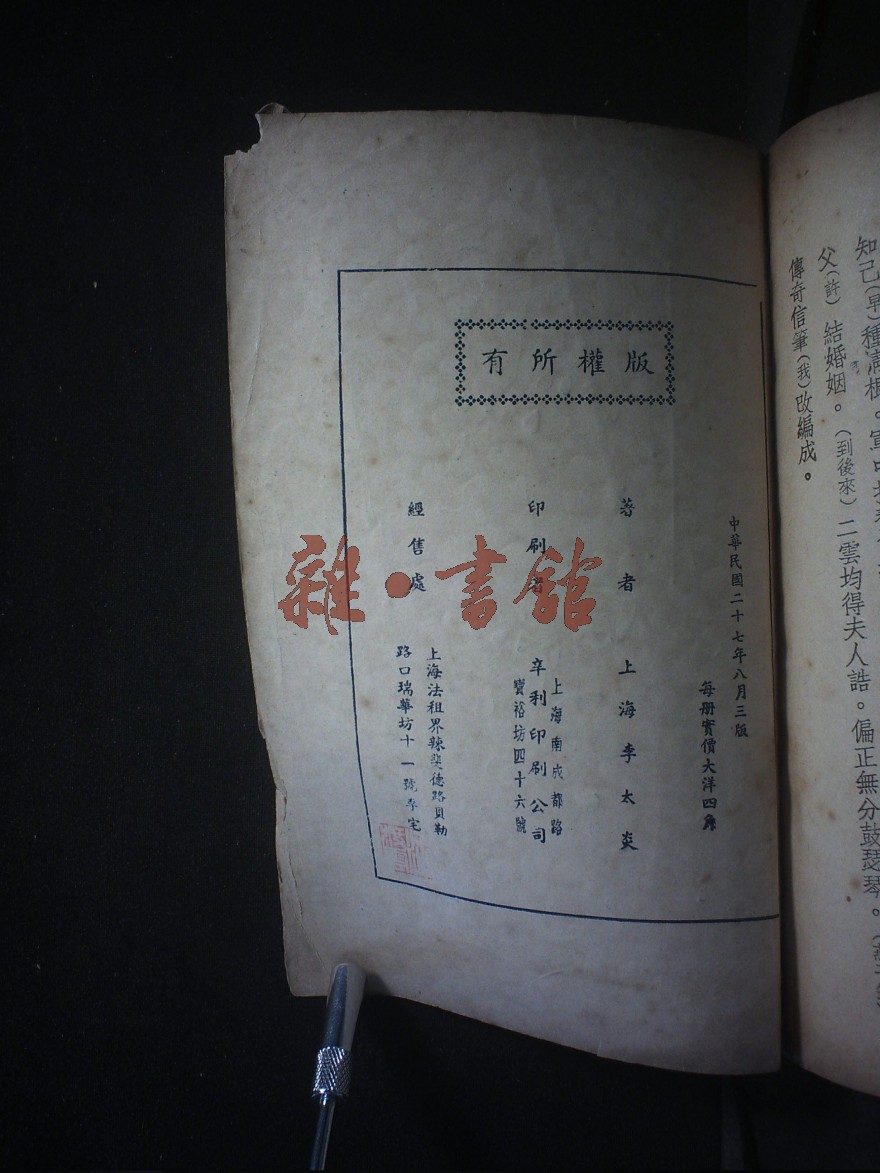 知己(早)種
父(許)結婚姻。(到後來)二雲均得夫人誥。偏正無分鼓瑟琴。
傳奇信筆(我)改編成。
版權所有
中華民國二十七年八月三版
每册實價大洋四角
著者 上海李太炎
印刷者
上海南成都路
辛利印刷公司
寶裕坊四十六號
經售處
上海法租界辣斐德路貝勒
路口瑞華坊十一號李宅
雜·書館